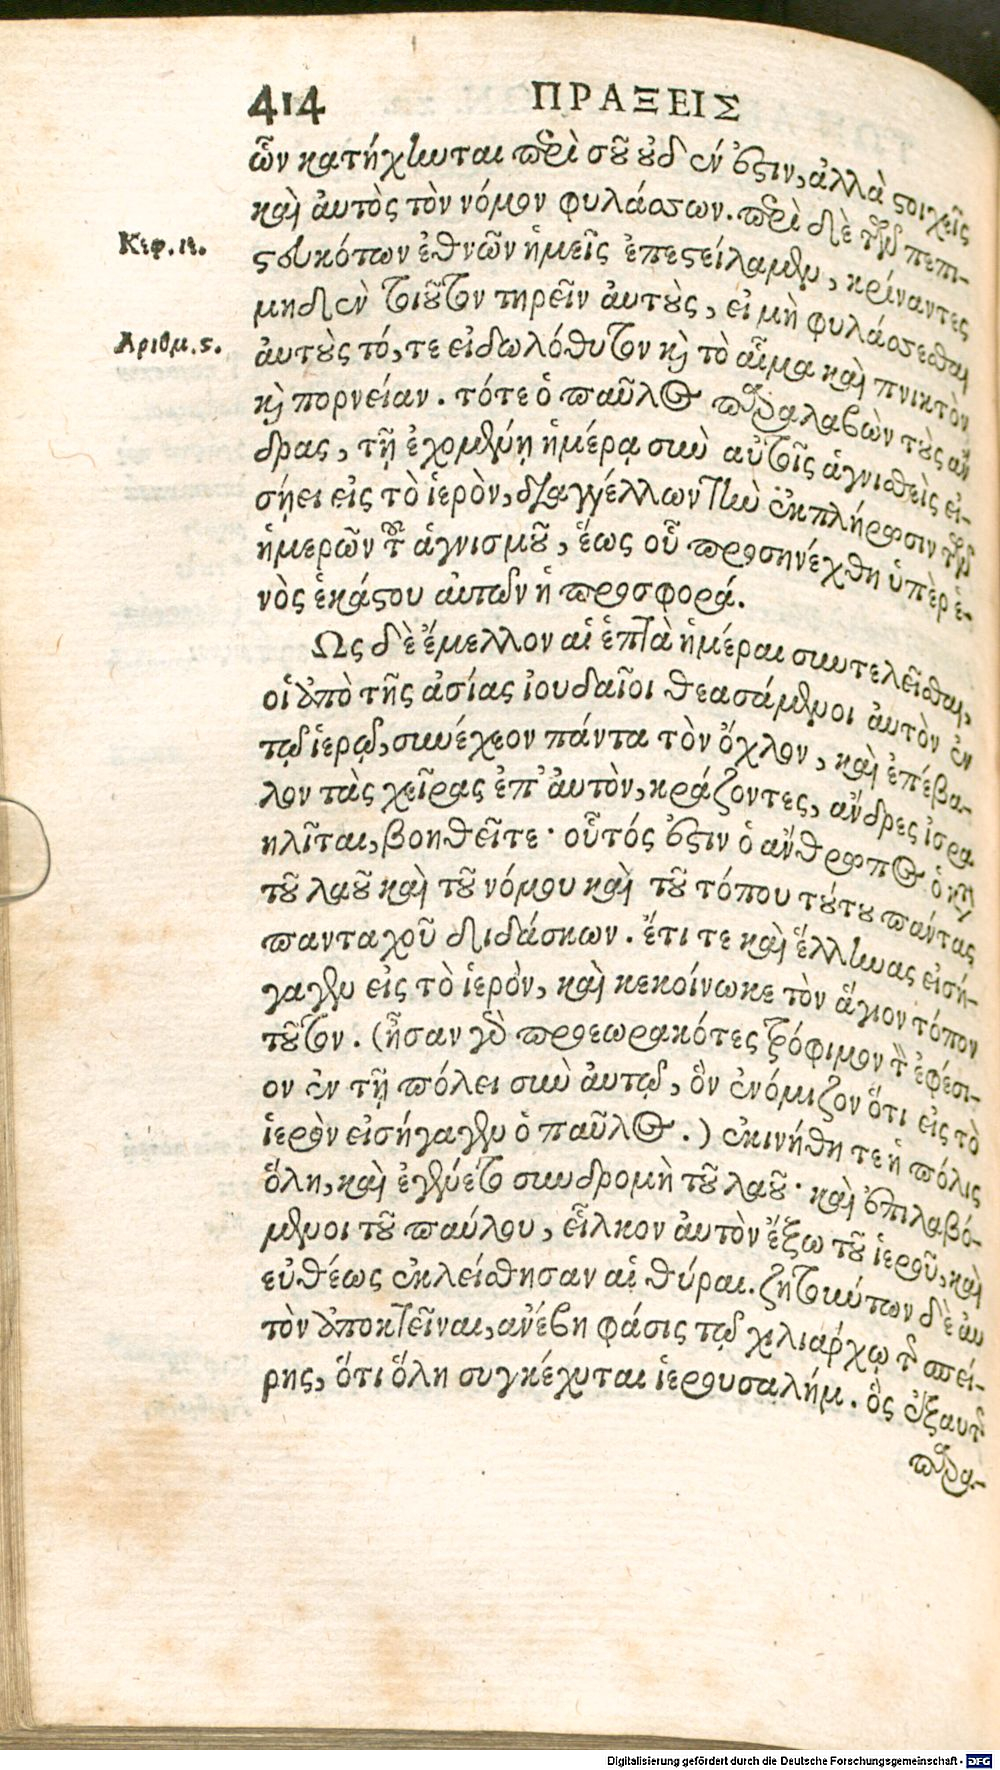 414 ΠΡΑΞΕΙΣ
ὧν κατήχηνται περὶ σοῦ οὐδέν ἐστιν, ἀλλὰ στοιχεῖς
καὶ ἀυτὸς τὸν νόμον φυλάσσων. περὶ δὲ τῶν πεπι-
Κεφ. ιε.
στευκότων ἐθνῶν ἡμεῖς ἐπεστείλαμεν, κρίναντες
μηδὲν τοιοῦτον τηρεῖν ἀυτοὺς, εἰ μὴ φυλάσσεσθαι
Αριθμ. ς.
ἀυτοὺς τό, τε εἰδωλόθυτον καὶ τὸ αἷμα καὶ πνικτὸν
καὶ πορνείαν. τότε ὁ παῦλος παραλαβὼν τοὺς ἄν
δρας, τῇ ἐχομένῃ ἡμέρᾳ σὺν αὐτοῖς ἁγνισθεὶς εἰ-
σῄει εἰς τὸ ἱερὸν, διαγγέλλων τὴν ἐκπλήρωσιν τῶν
ἡμερῶν τοῦ ἁγνισμοῦ, ἕως οὗ προσηνέχθη ὑπὲρ ἑ-
νὸς ἑκάστου ἀυτῶν ἡ προσφορά.
Ως δὲ ἔμελλον αἱ ἑπτὰ ἡμέραι συντελεῖσθαι,
οἱ ἀπὸ τῆς ἀσίας ἰουδαῖοι θεασάμενοι ἀυτὸν ἐν
τῷ ἱερῷ, συνέχεον πάντα τὸν ὄχλον, καὶ ἐπέβα-
λον τὰς χεῖρας ἐπ' ἀυτὸν, κράζοντες, ἄνδρες ἰσρα
ηλῖται, βοηθεῖτε· οὗτός ἐστιν ὁ ἄνθρωπος ὁ κατὰ
τοῦ λαοῦ καὶ τοῦ νόμου καὶ τοῦ τόπου τούτου πάντας
πανταχοῦ διδάσκων. ἔτι τε καὶ ἕλληνας εἰσή-
γαγεν εἰς τὸ ἱερὸν, καὶ κεκοίνωκε τὸν ἅγιον τόπον
τοῦτον. (ἦσαν γὰρ προεωρακότες τρόφιμον τὸν ἐφέσι-
ον ἐν τῇ πόλει σὺν ἀυτῷ, ὃν ἐνόμιζον ὅτι εἰς τὸ
ἱερὸν εἰσήγαγεν ὁ παῦλος.) ἐκινήθη τε ἡ πόλις
ὅλη, καὶ ἐγένετο συνδρομὴ τοῦ λαοῦ· καὶ ἐπιλαβό-
μενοι τοῦ παύλου, εἷλκον ἀυτὸν ἔξω τοῦ ἱεροῦ, καὶ
εὐθέως ἐκλείσθησαν αἱ θύραι. ζητούντων δὲ ἀυ
τὸν ἀποκτεῖναι, ἀνέβη φάσις τῷ χιλιάρχῳ τῆς σπεί-
ρης, ὅτι ὅλη συγκέχυται ἱερουσαλήμ. ὃς ἐξαυτῆς
παρα-
Digitalisierung gefördert durch die Deutsche Forschungsgemeinschaft - DFG